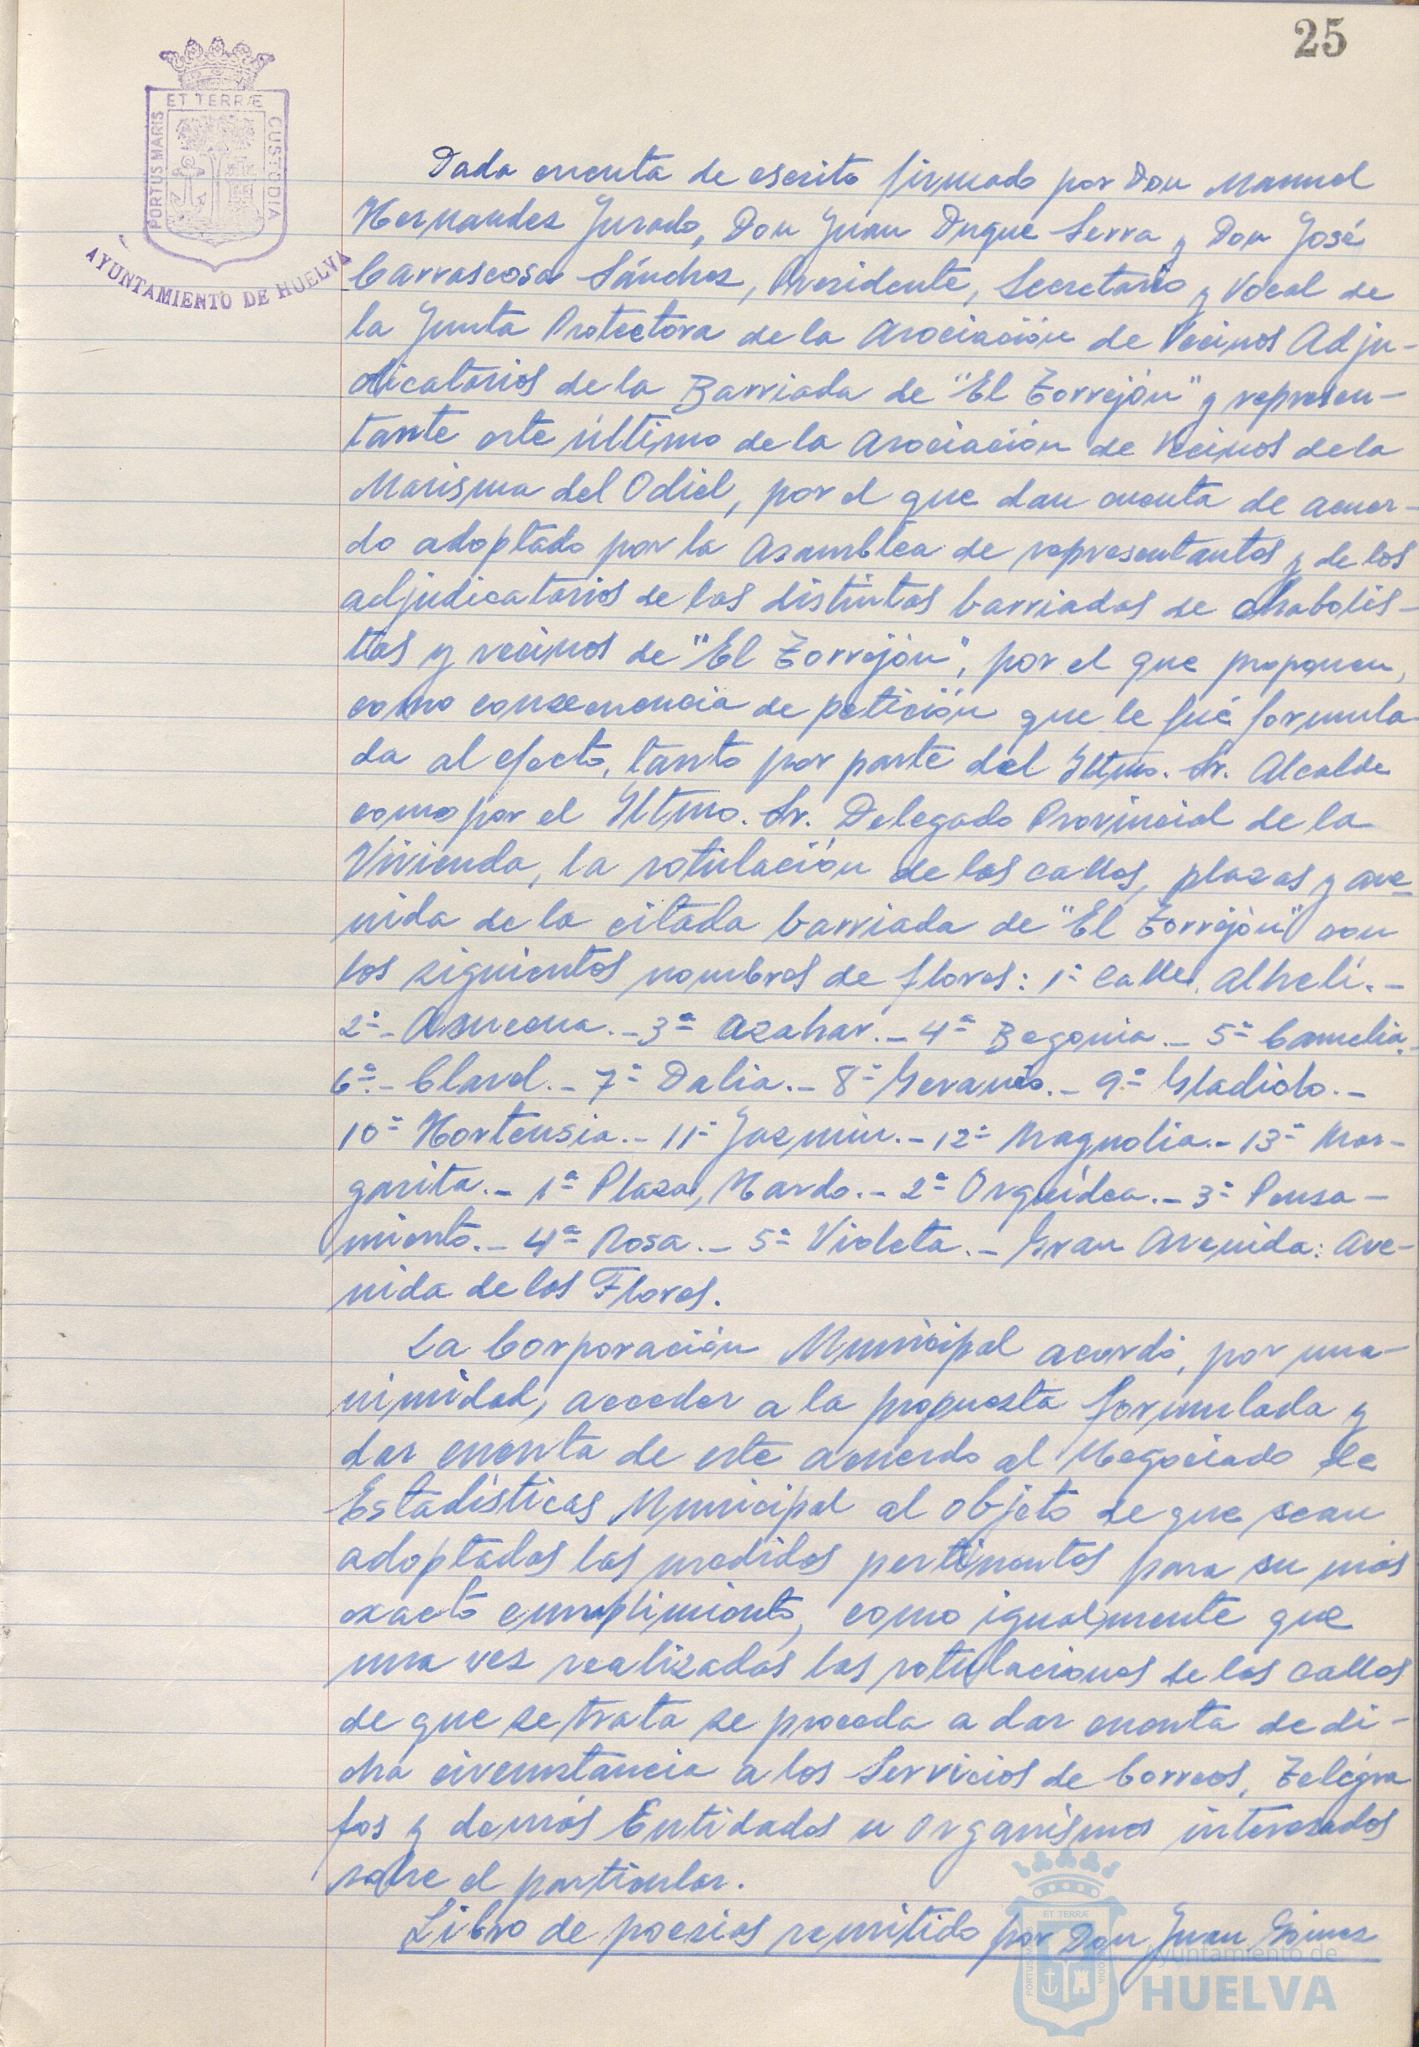 25
ET TERRÆ
PORTUS MARIS
CUSTODIA
AYUNTAMIENTO DE HUELVA
Dada cuenta de escrito firmado por Don Manuel
Hernandez Jurado, Don Juan Duque Serra y Don José
Carrascosa Sánchez, Presidente, Secretario y Vocal de
la Junta Protectora de la Asociación de Vecinos Adju-
dicatarios de la Barriada de "El Torrejón" y represen-
tante este último de la Asociación de Vecinos de la
Marisma del Odiel, por el que dan cuenta de acuer-
do adoptado por la Asamblea de representantes y de los
adjudicatarios de las distintas barriadas de chabolis-
tas y vecinos de "El Torrejón", por el que proponen,
como consecuencia de petición que le fué formula-
da al efecto, tanto por parte del Iltmo. Sr. Alcalde
como por el Iltmo. Sr. Delegado Provincial de la
Vivienda, la rotulación de las calles, plazas y ave-
nida de la citada barriada de "El Torrejón" con
los siguientes nombres de flores: 1ª Calle, Alhelí.-
2ª- Azucena.- 3ª Azahar.- 4ª Begonia.- 5ª Camelia.-
6ª- Clavel.- 7ª Dalia.- 8ª Geranio.- 9ª Gladiolo.-
10ª Hortensia.- 11ª Jazmin.- 12ª Magnolia.- 13ª Mar-
garita.- 1ª Plaza, Nardo.- 2ª Orquídea.- 3ª Pensa-
miento.- 4ª Rosa.- 5ª Violeta.- Gran Avenida: Ave-
nida de las Flores.
La Corporación Municipal acordó, por una-
nimidad, acceder a la propuesta formulada y
dar cuenta de este acuerdo al Negociado de
Estadísticas Municipal al objeto de que sean
adoptadas las medidas pertinentes para su más
exacto cumplimiento, como igualmente que
una vez realizadas las rotulaciones de las calles
de que se trata se proceda a dar cuenta de di-
cha circunstancia a los Servicios de Correos, Telégra
fos y demás Entidades u Organismos interesados
sobre el particular.
Libro de poesias remitido por Don Juan Gómez
ET TERRÆ
PORTUS MARIS
CUSTODIA
Ayuntamiento de
HUELVA